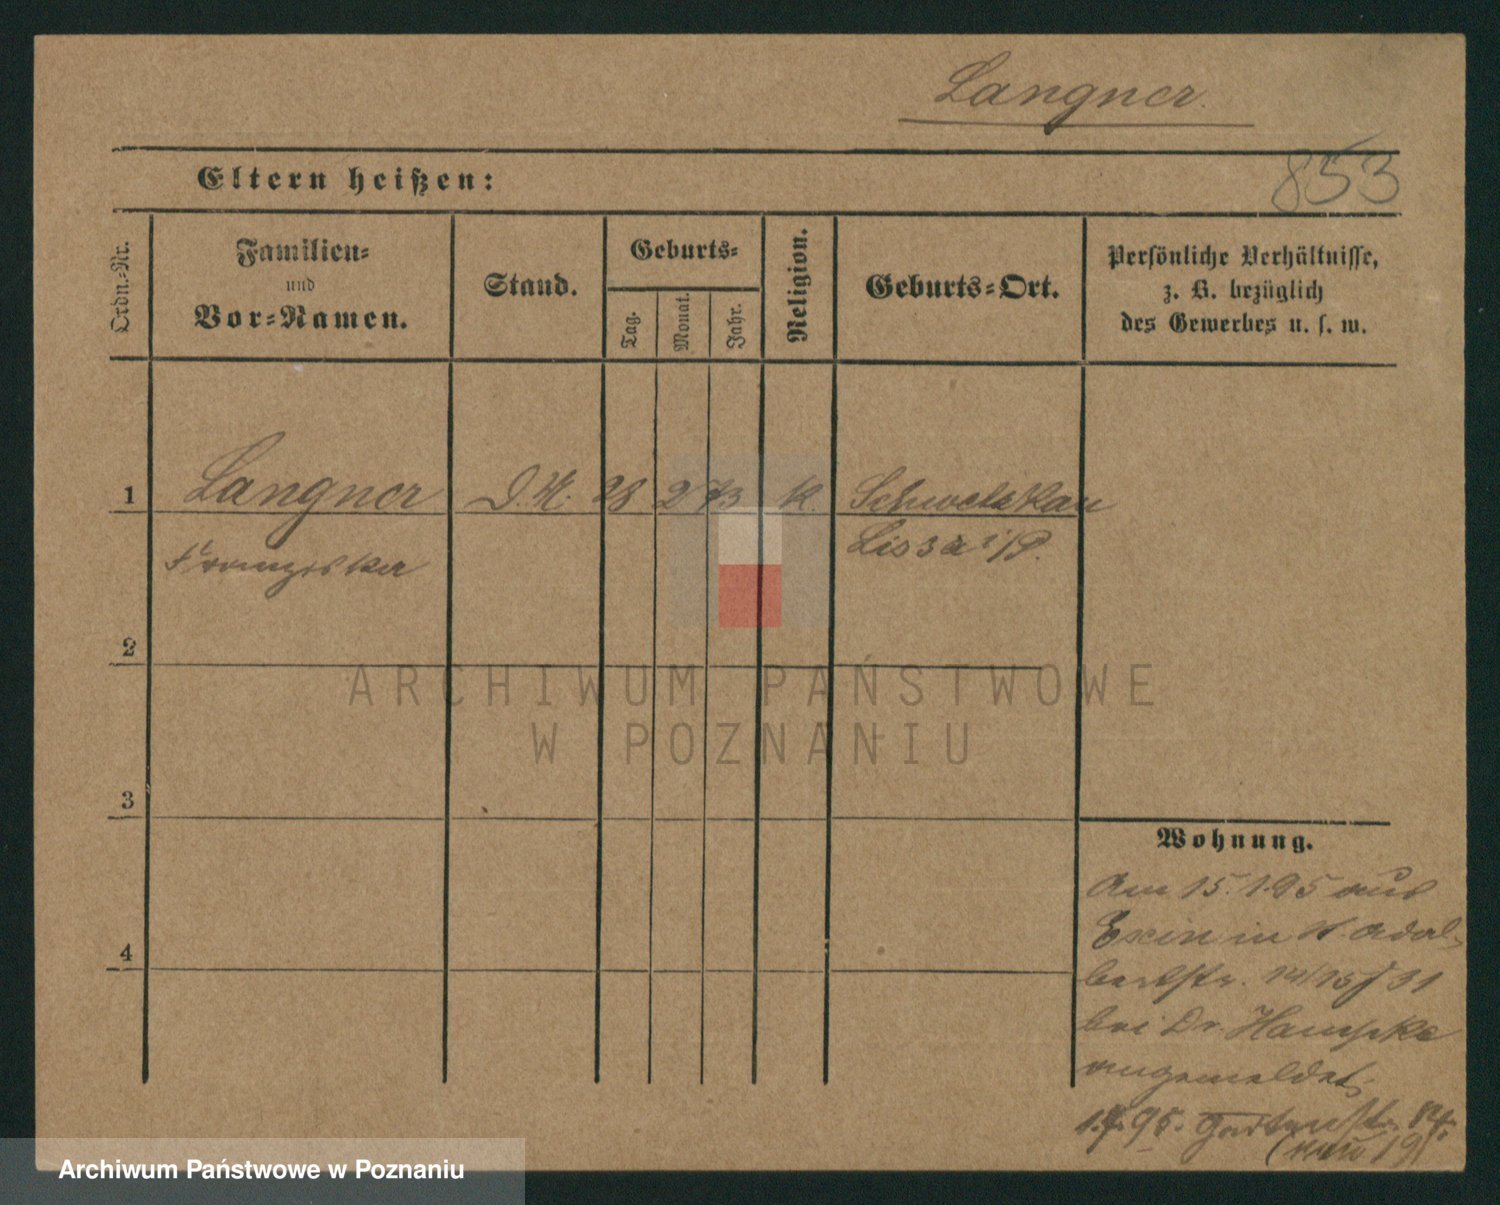 Langner.
853
Eltern heißen:
Ordn.-Nr.
Familien-
und
Vor-Namen.
Stand.
Geburts-
Tag.
Monat.
Jahr.
Religion.
Geburts-Ort.
Persönliche Verhältnisse,
z. B. bezüglich
des Gewerbes u. s. w.
1
Langner D. M. 28 2 73 K. Schwetzkau
Franziska Lissa i/P.
2
ARCHIWUM PAŃSTWOWE
W POZNANIU
3
Wohnung.
Am 15.1.95 aus
Exin in St. Adal-
bertstr.
bei Dr. Hampke
angemeldet,
4
1.4.95. Gartenstr.
Archiwum Państwowe w Poznaniu